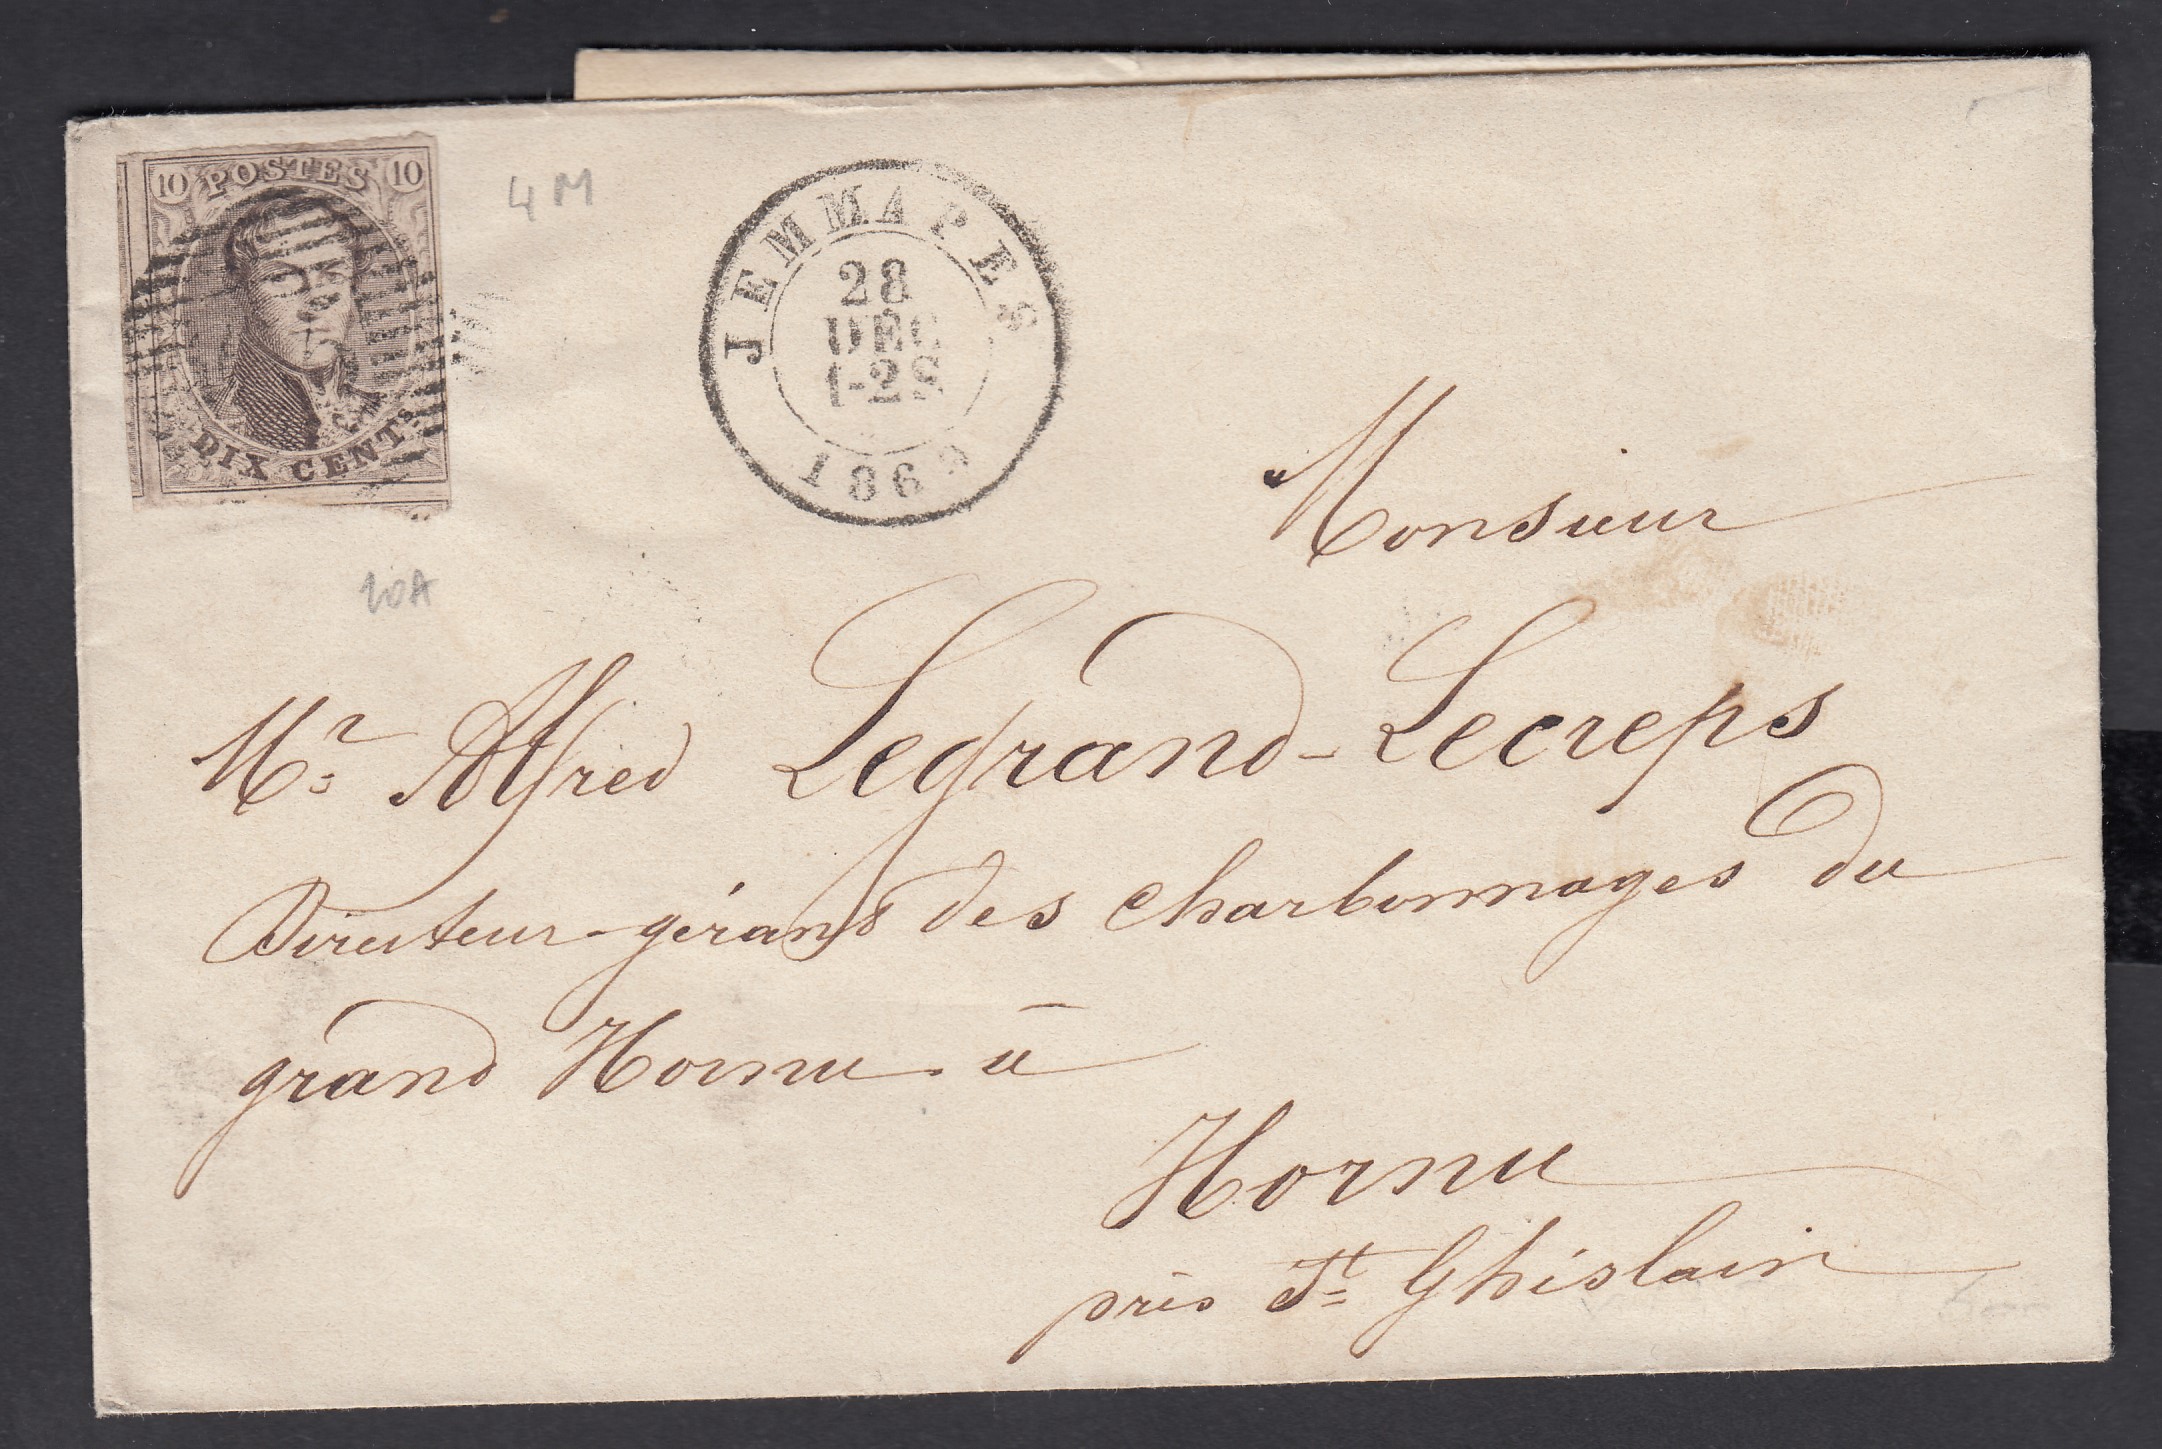 10 POSTES 10
DIX CENTS
4M
JEMMAPES
28
DÉC
1-2S
186
10A
Monsieur
Mr Alfred Legrand-Lecreps
Directeur-gérant des charbonnages du
grand Hornu à
Hornu
près St Ghislain